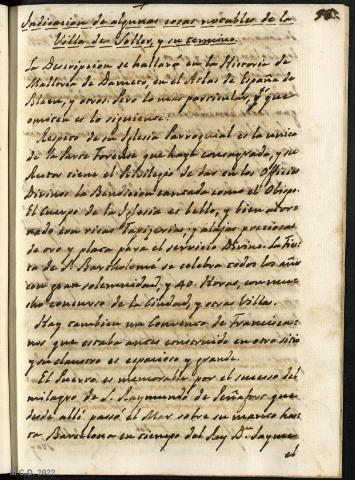 Indicacion de algunas cosas notables de la
Villa de Soller, y su termino.
La Descripcion se hallará en la Historia de
Mallorca de Dameto, en el Atlas de España de
Bleau, y otros. Pero lo mas particular, q.e que
omiten es lo siguiente:
Respeto de su Iglesia Parroquial es la unica
de la Parte Forense que haya consagrada, y su
Retor tiene el Privilegio de dar en los Officios
Divinos la Bendicion cantada como el Obispo.
El cuerpo de la Iglesia es bello, y bien ador-
nado con ricas Tapizerias, y alajas preciosas
de oro y plata para el servicio Divino. La Fies-
ta de S.n Bartholomé se celebra todos los años
con gran solemnidad, y 40. Horas, con mu-
cho concurso de la Ciudad, y otras Villas.
Hay tambien un Convento de Francisca-
nos que estaba antes construido en otro sitio
y su claustro es espacioso y grande.
El Puerto es memorable por el suceso del
milagro de S. Raymundo de Peñafort que
desde alli passó el Mar sobre su manto has-
ta Barcelona en tiempo del Rey D.n Jayme
el
2022